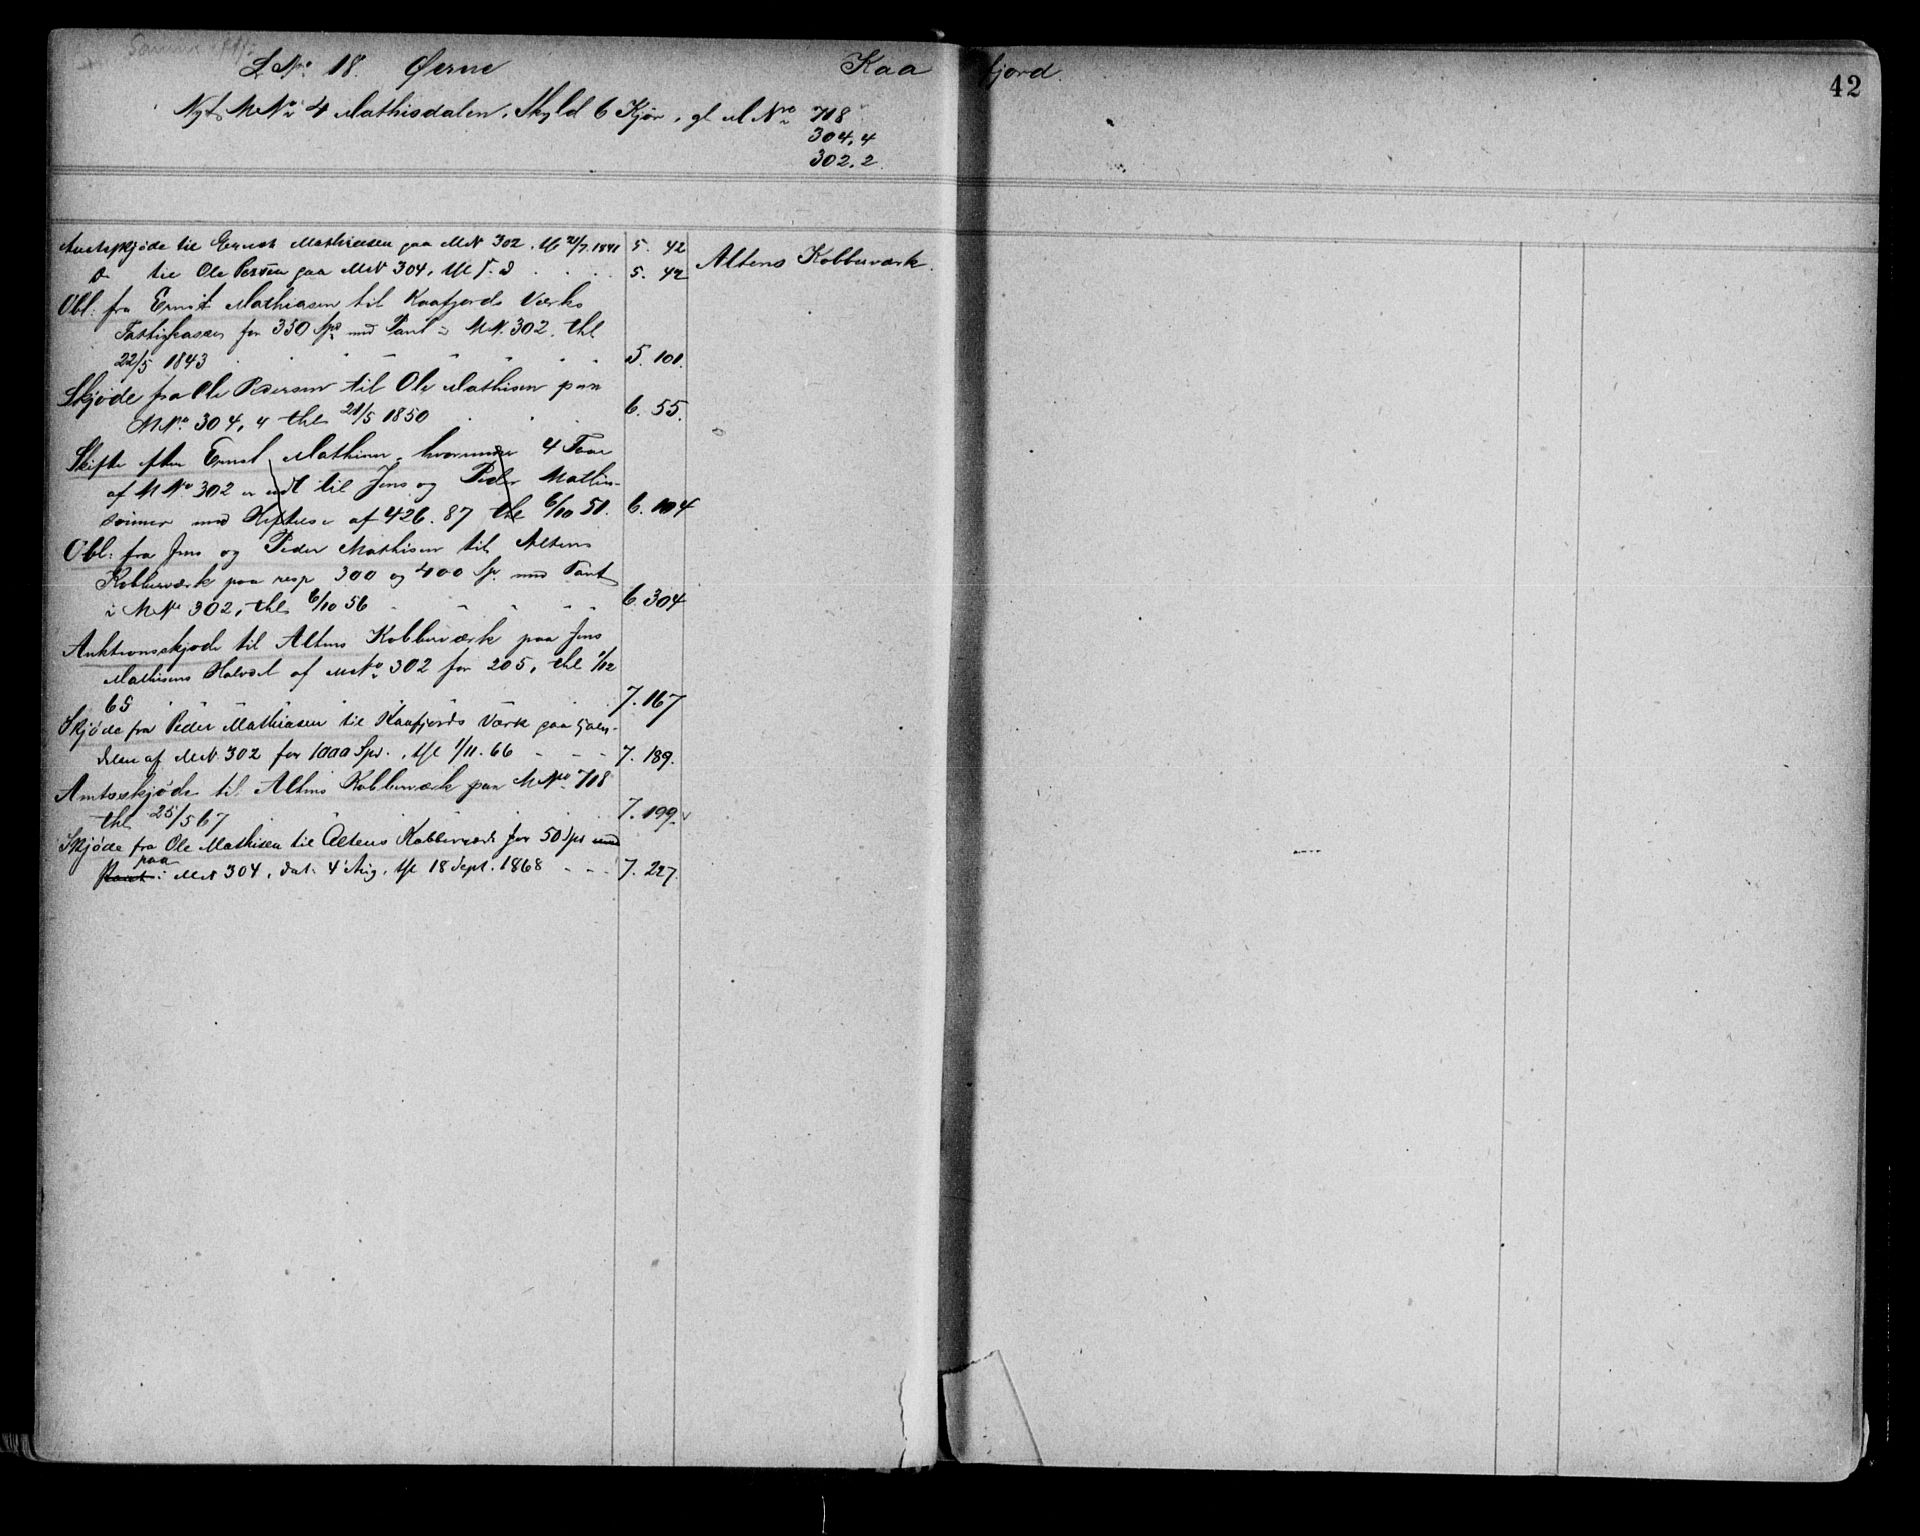 L No. 18. Øerne Kaafjord. 42
Nyt MNo 4 Mathisdalen, Skyld 6 Kjør, gl M Nro 718
304,4
302,2
Amtsskjøde til Ernst Mathiasen paa MN 302, thl 21/7 1841 5. 42 Altens Kobberværk.
Do til Ole Persen paa MN 304, thl s. d 5. 42
Obl. fra Ernst Mathiasen til Kaafjords Værks
Fattigkasse for 350 Spd med Pant i MN. 302. thl
22/5 1843 5. 101.
Skjøde fra Ole Pedersen til Ole Mathisen paa
MNo. 304, 4 thl 21/5 1850 6. 55.
Skifte efter Ernst Mathisen, hvorunder 4
af MNo 302 er udl til Jens og Peder Mathis-
sønner med Heftelse af 426. 87 thl 6/10 51. 6. 104
Obl. fra Jens og Peder Mathisen til Altens
Kobberværk paa resp 300 og 400 Sp. med Pant
i MNo 302, thl 6/10 56 6. 304
Auktionsskjøde til Altens Kobberværk paa Jens
Mathisens Halvdel af MNo 302 for 205, thl 1/12
65 7. 167
Skjøde fra Peder Mathiasen til Kaafjords Værk paa
delen af MN 302 for 1000 Spd., thl 1/11. 66 7. 189.
Amtsskjøde til Altens Kobberværk paa MNo 718
thl 25/5 67 7. 199.
Skjøde fra Ole Mathisen til Altens Kobberværk for 50 Spd med
paa
Pant i MN 304, dat. 4 Aug, thl 18 Sept. 1868 7. 227.